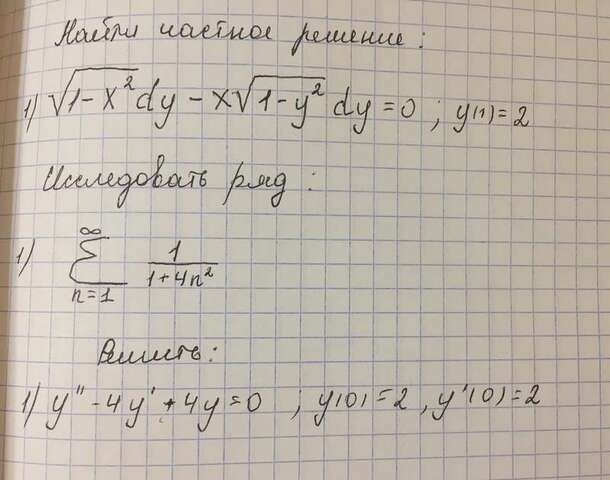 Найти частное решение:
1) √(1-x²) dy - x√(1-y²) dy = 0 ; y(1) = 2
Исследовать ряд:
1) ∞ ∑ n=1 1/(1+4n²)
Решить:
1) y'' - 4y' + 4y = 0 ; y(0) = 2 , y'(0) = 2